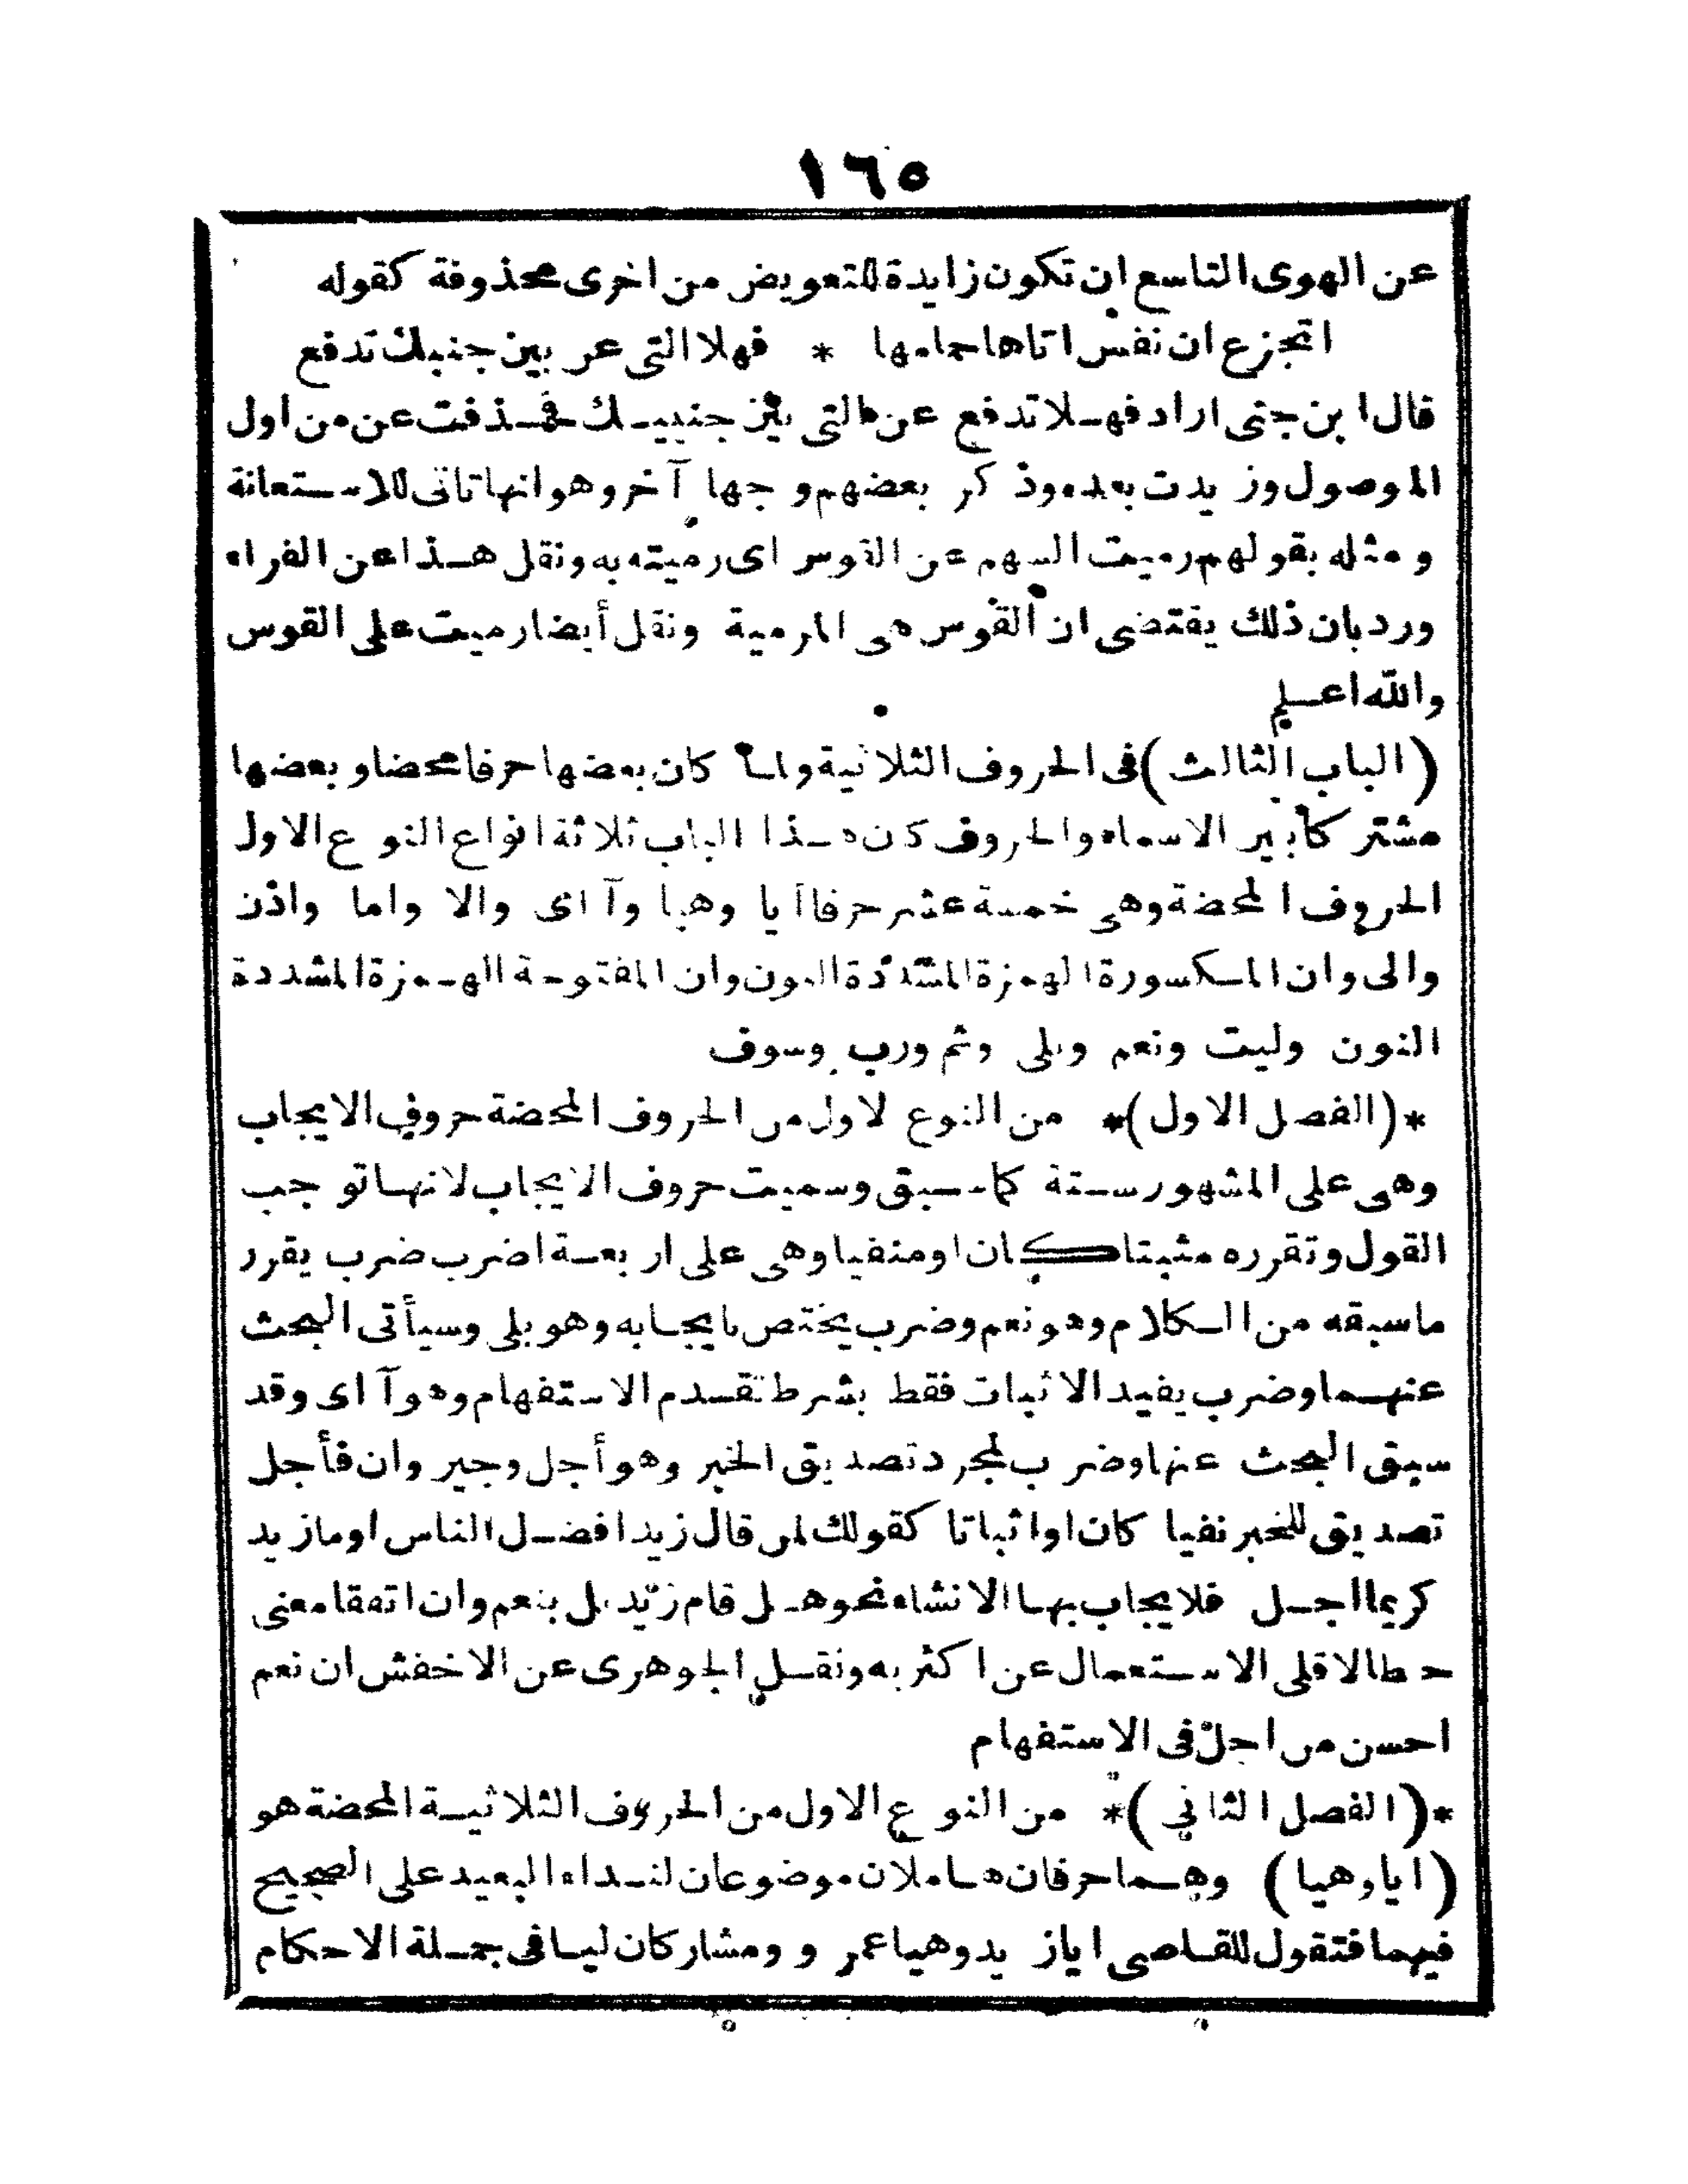 ١٦٥
عن الهوى التاسع ان تكون زايدة للتعويض من اخرى محذوفة كقوله
اتجزع ان نفس اتاها حمامها * فهلا التى عن بين جنبيك تدفع
قال ابن جنى اراد فهلا تدفع عن التى بين جنبيك فحذفت عن من اول
الموصول وزيدت بعده وذكر بعضهم وجها آخر وهو انها تاتى للاستعانة
ومثله بقولهم رميت السهم عن القوس اى رميته به ونقل هذا عن الفراء
ورد بان ذلك يقتضى ان القوس هى المرمية ونقل أيضا رميت على القوس
والله اعلم
(الباب الثالث) فى الحروف الثلاثية ولما كان بعضها حرفا محضا وبعضها
مشتركا بين الاسماء والحروف كان هذا الباب ثلاثة انواع النوع الاول
الحروف المحضة وهى خمسة عشر حرفا أيا وهيا وآ اى والا واما واذن
والى وان المكسورة الهمزة المشددة النون وان المفتوحة الهمزة المشددة
النون وليت ونعم وبلى وثم ورب وسوف
*(الفصل الاول)* من النوع لاول من الحروف المحضة حروف الايجاب
وهى على المشهور ستة كما سبق وسميت حروف الايجاب لانها توجب
القول وتقرره مثبتا كان او منفيا وهى على اربعة اضرب ضرب يقرر
ماسبقه من الكلام وهو نعم وضرب يختص بايجابه وهو بلى وسيأتى البحث
عنهما وضرب يفيد الاثبات فقط بشرط تقدم الاستفهام وهو آ اى وقد
سبق البحث عنها وضرب لمجرد تصديق الخبر وهو أجل وجير وان فأجل
تصديق للخبر نفيا كان او اثباتا كقولك لمن قال زيد افضل الناس او مازيد
كريما اجل فلا يجاب بها الانشاء نحو هل قام زيد بل بنعم وان اتفقا معنى
حطا لاقلى الاستعمال عن اكثر به ونقل الجوهرى عن الاخفش ان نعم
احسن من اجل فى الاستفهام
*(الفصل الثاني)* من النوع الاول من الحروف الثلاثية المحضة هو
(ايا وهيا) وهما حرفان هاملان موضوعان لنداء البعيد على الصحيح
فيهما فتقول للقاصى ايا زيد وهيا عمرو ومشاركان ليا فى جملة الاحكام